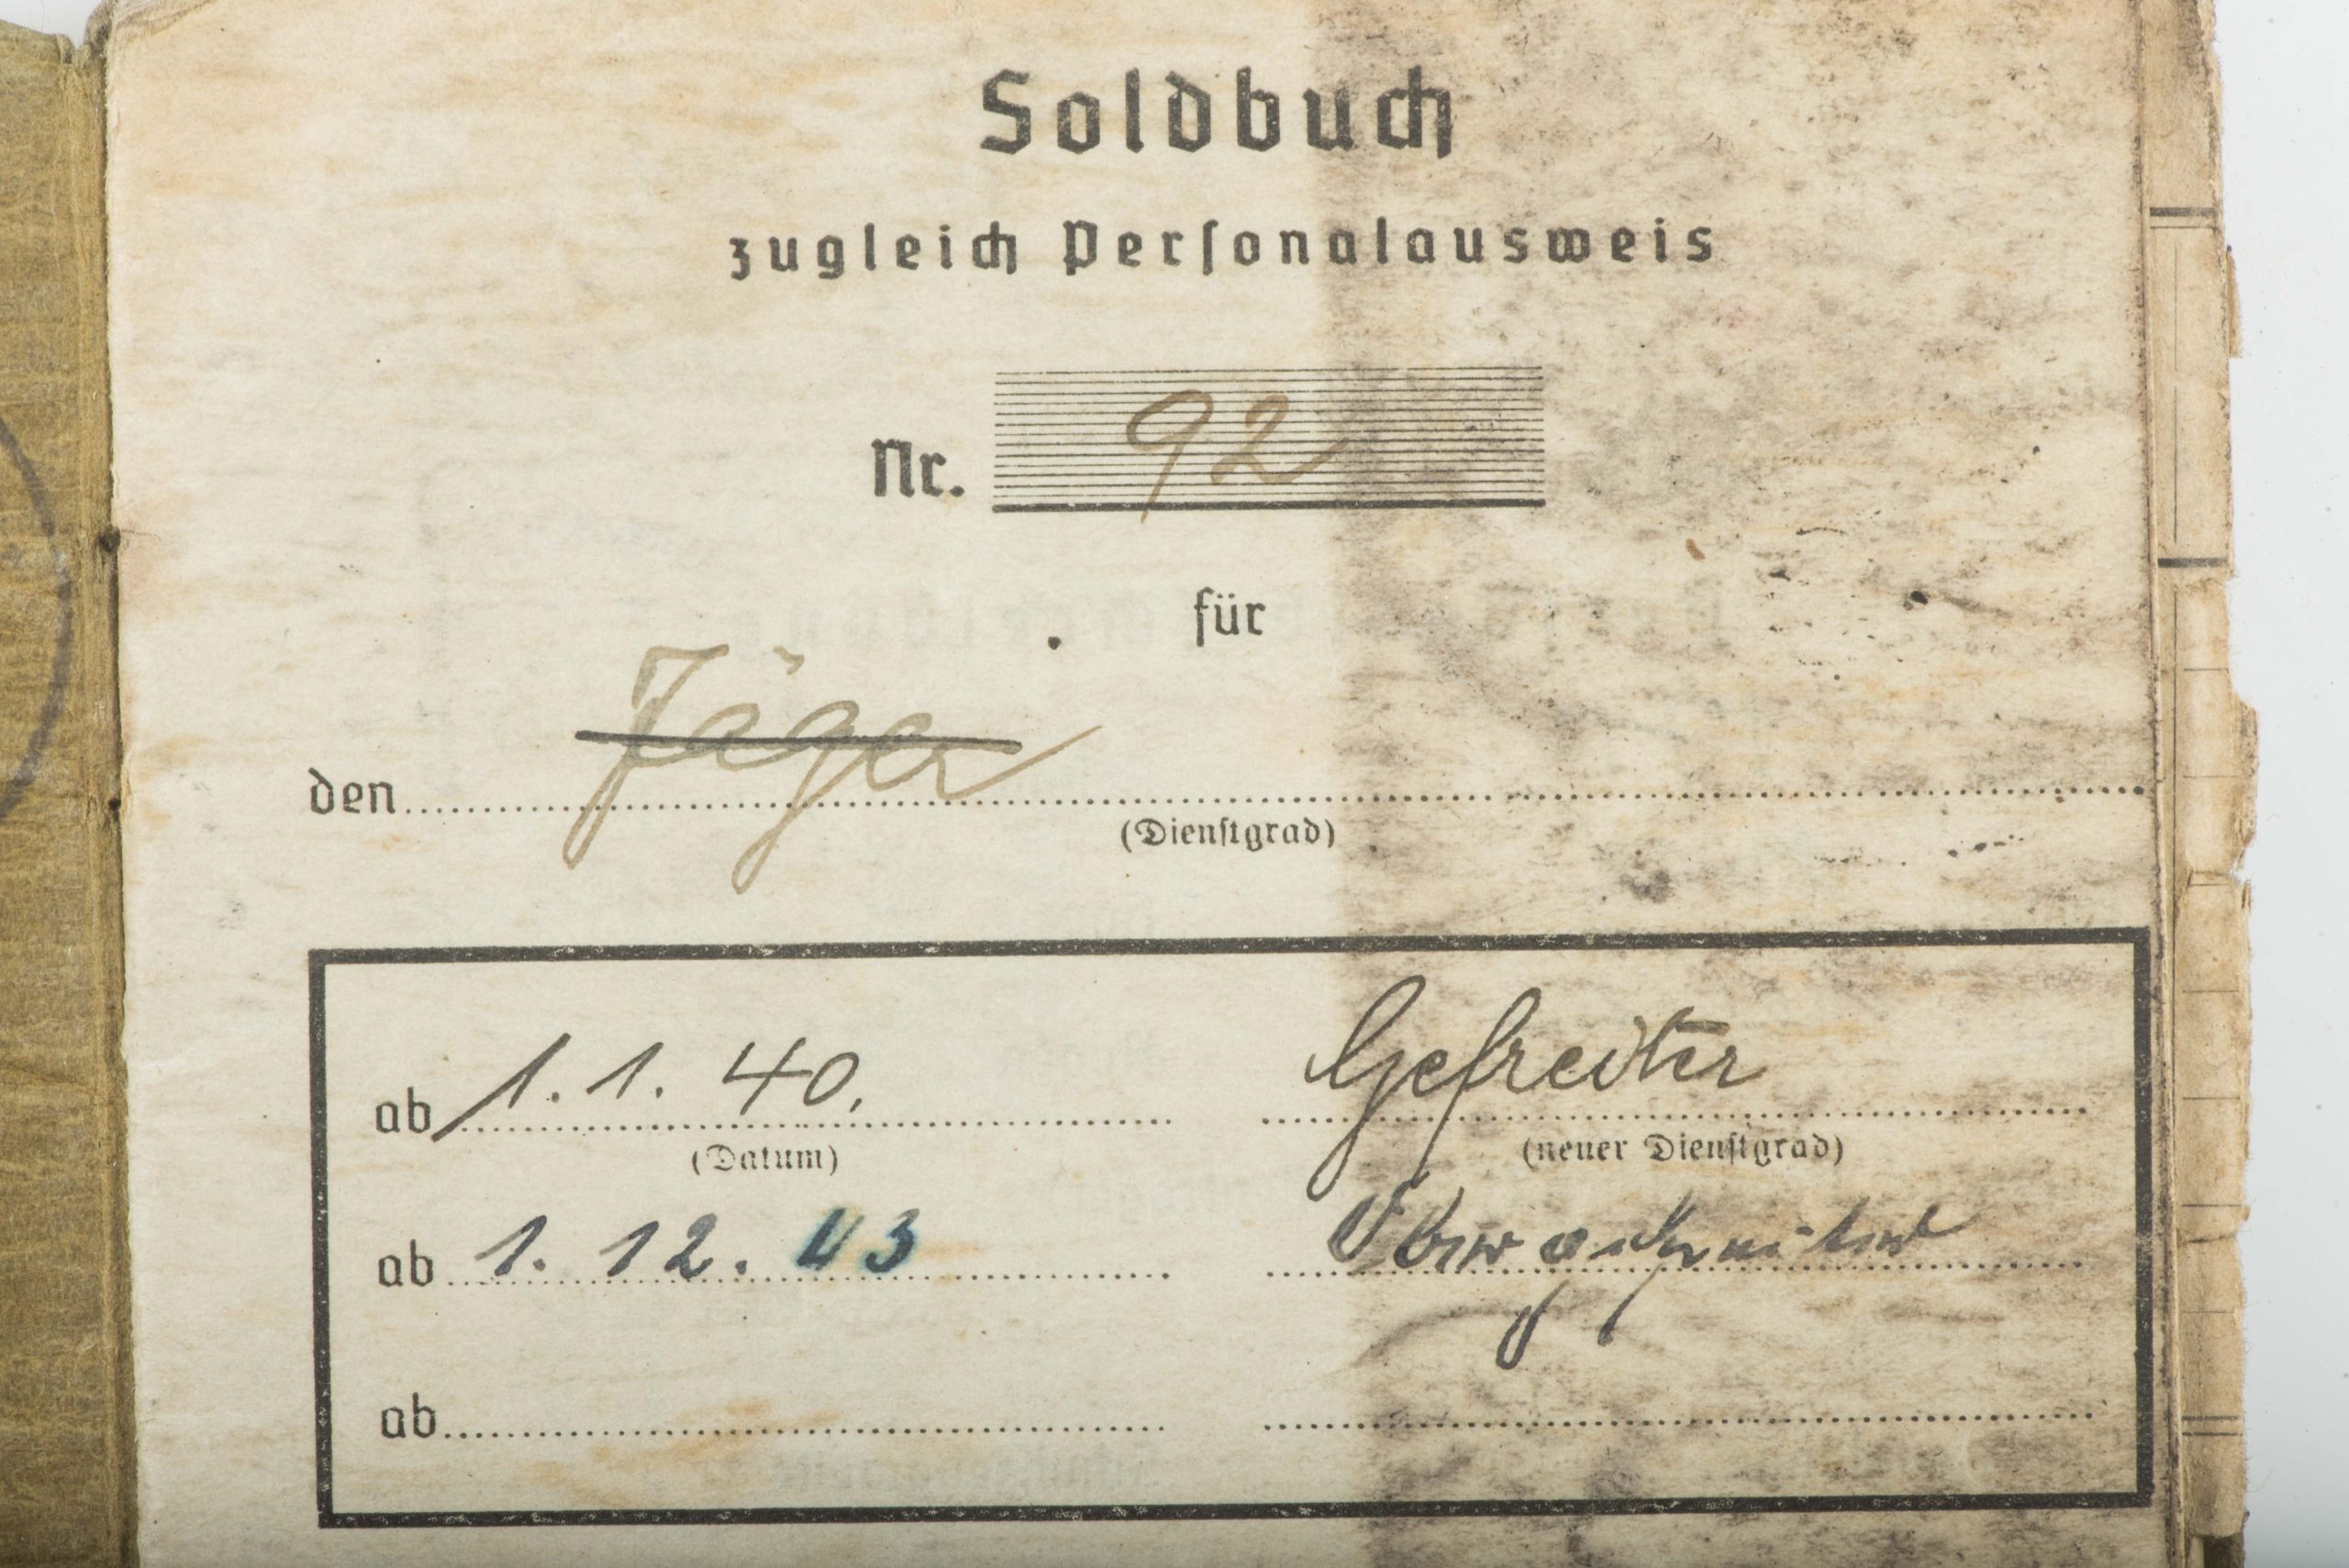 Soldbuch
zugleich Personalausweis
Nr. 92
für
den Jäger
(Dienstgrad)
ab 1.1.40. Gefreiter
(Datum) (neuer Dienstgrad)
ab 1.12.43 Obergefreiter
ab